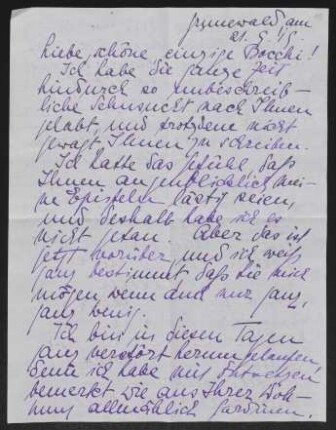 Grunewald, am
21. 5. 18.
Liebe, schöne, einzige Bocchi!
Ich habe die ganze Zeit
hindurch so unbeschreib-
liche Sehnsucht nach Ihnen
gehabt, und trotzdem nicht
gewagt, Ihnen zu schreiben.
Ich hatte das Gefühl, daß
Ihnen augenblicklich mei-
ne Episteln lästig seien,
und deshalb habe ich es
nicht getan. Aber das ist
jetzt vorüber, und ich weiß
ganz bestimmt daß Sie mich
mögen, wenn auch nur ganz,
ganz wenig.
Ich bin in diesen Tagen
ganz verstört herumgelaufen
denn ich habe mit Entsetzen
bemerkt wie aus Ihrer Woh-
nung allmählich Gardinen,